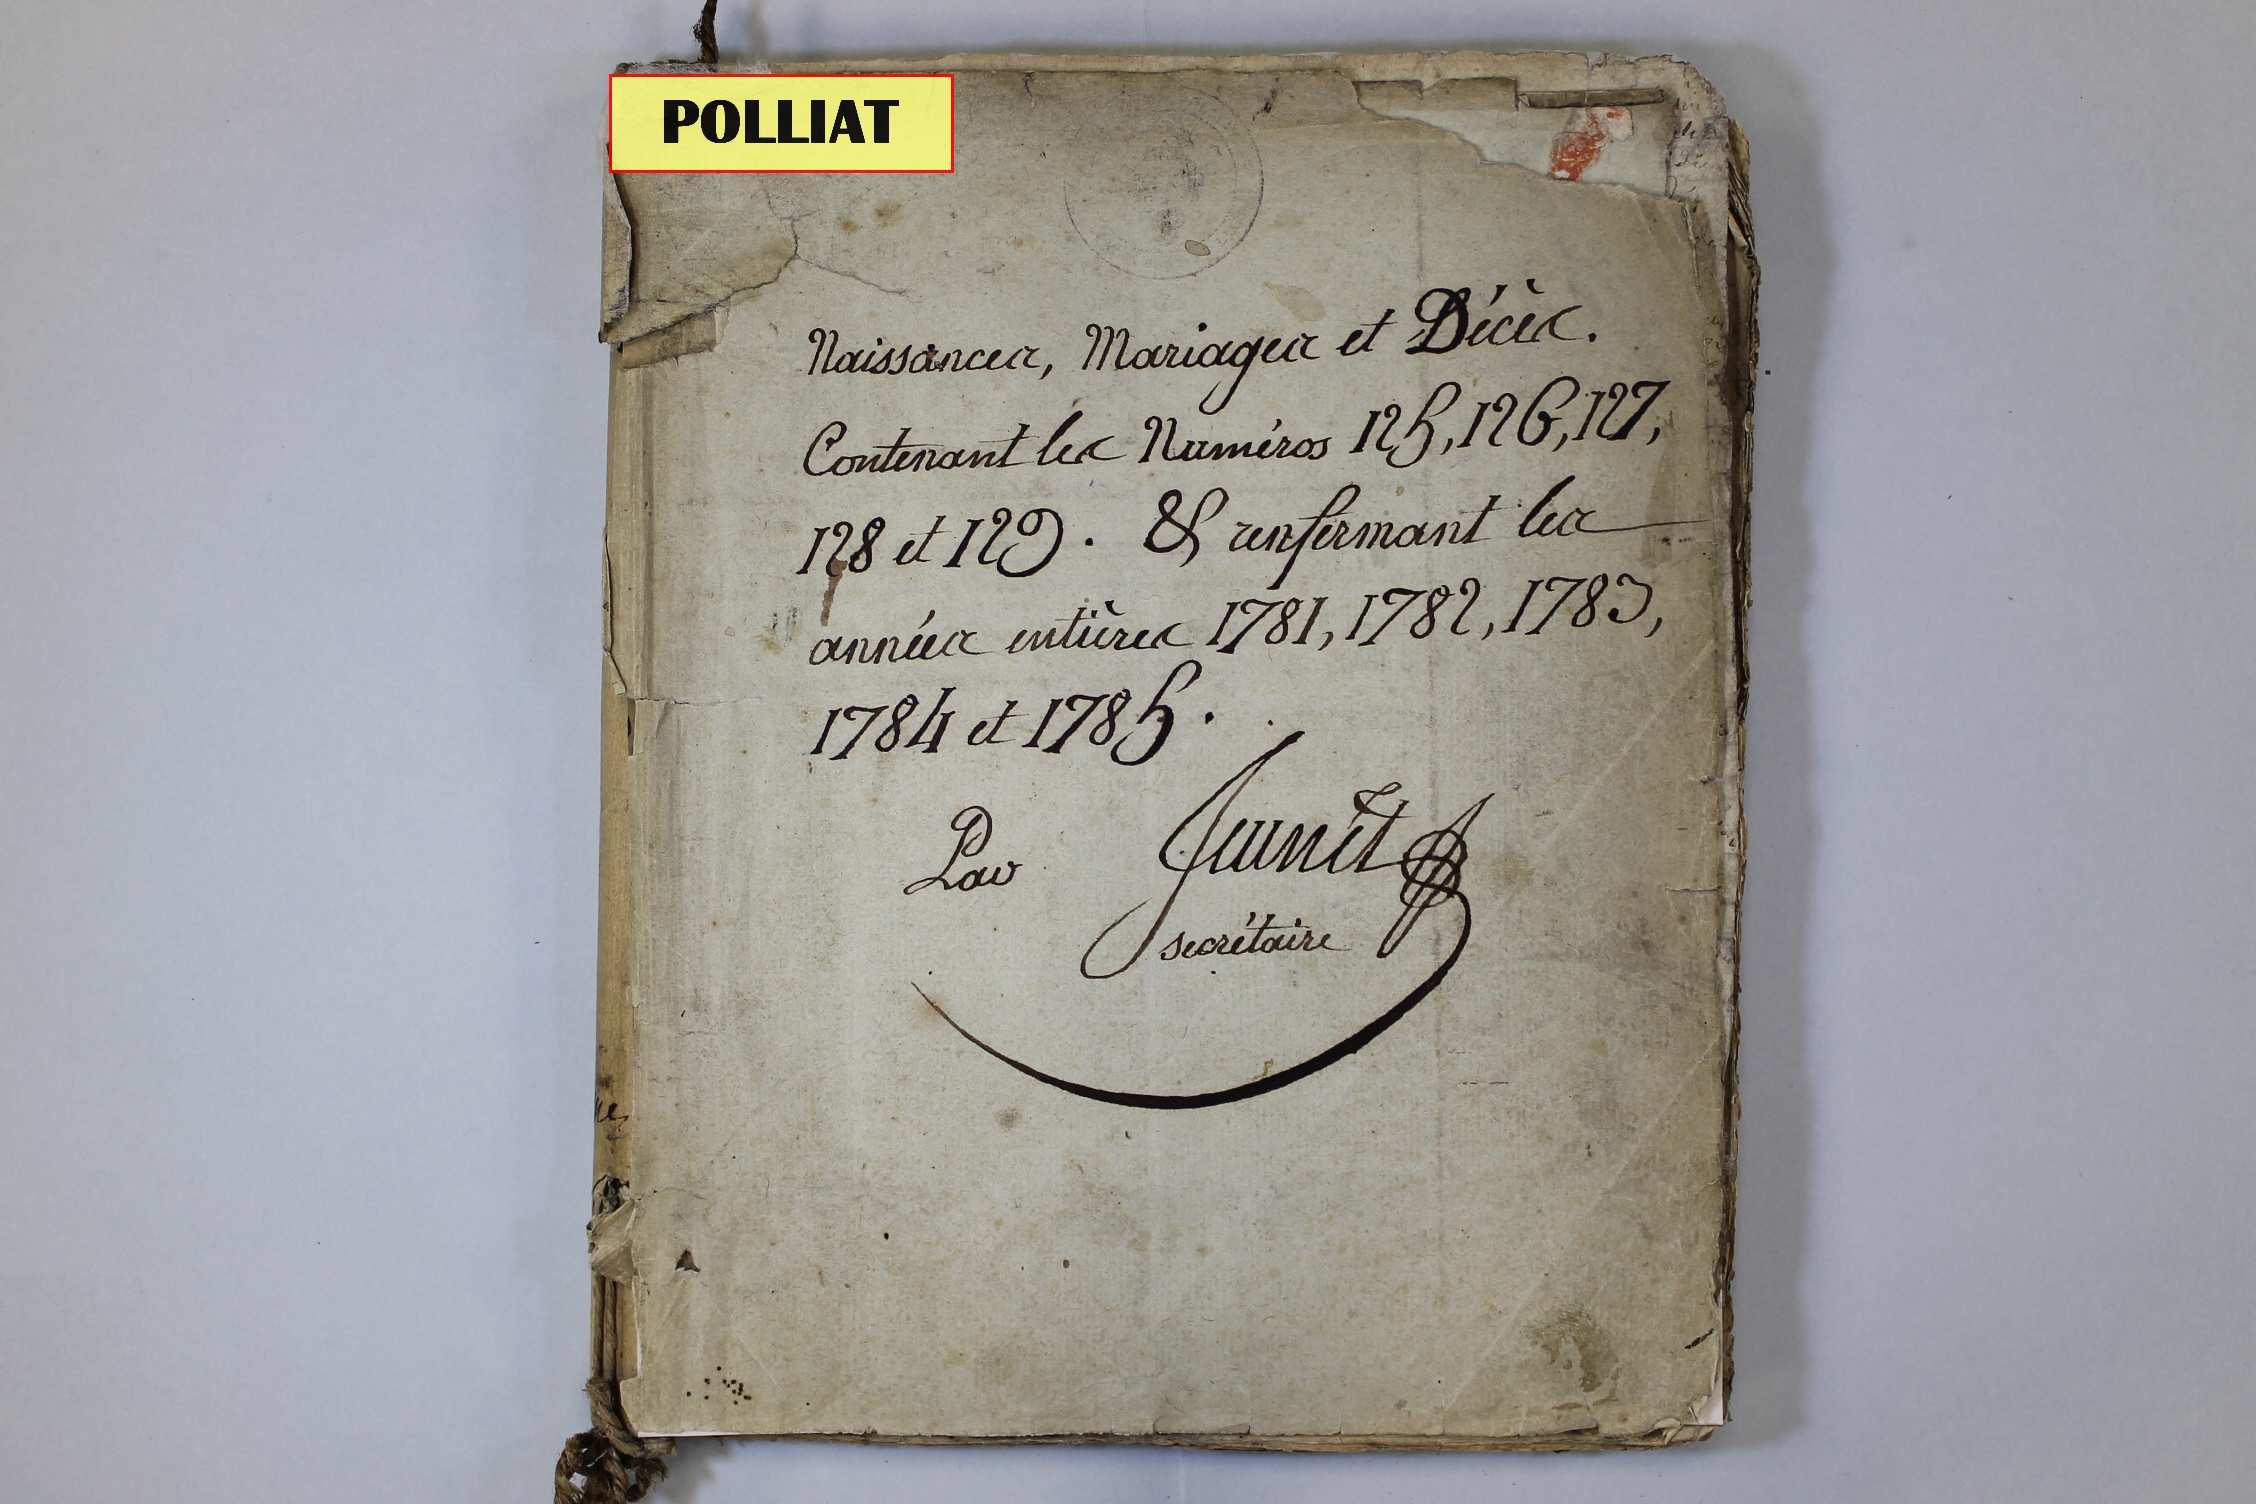 POLLIAT
Naissances, Mariages et Décès.
Contenant les Numéros 125, 126, 127,
128 et 129. & renfermant les
années entières 1781, 1782, 1783,
1784 et 1785.
Par
secrétaire